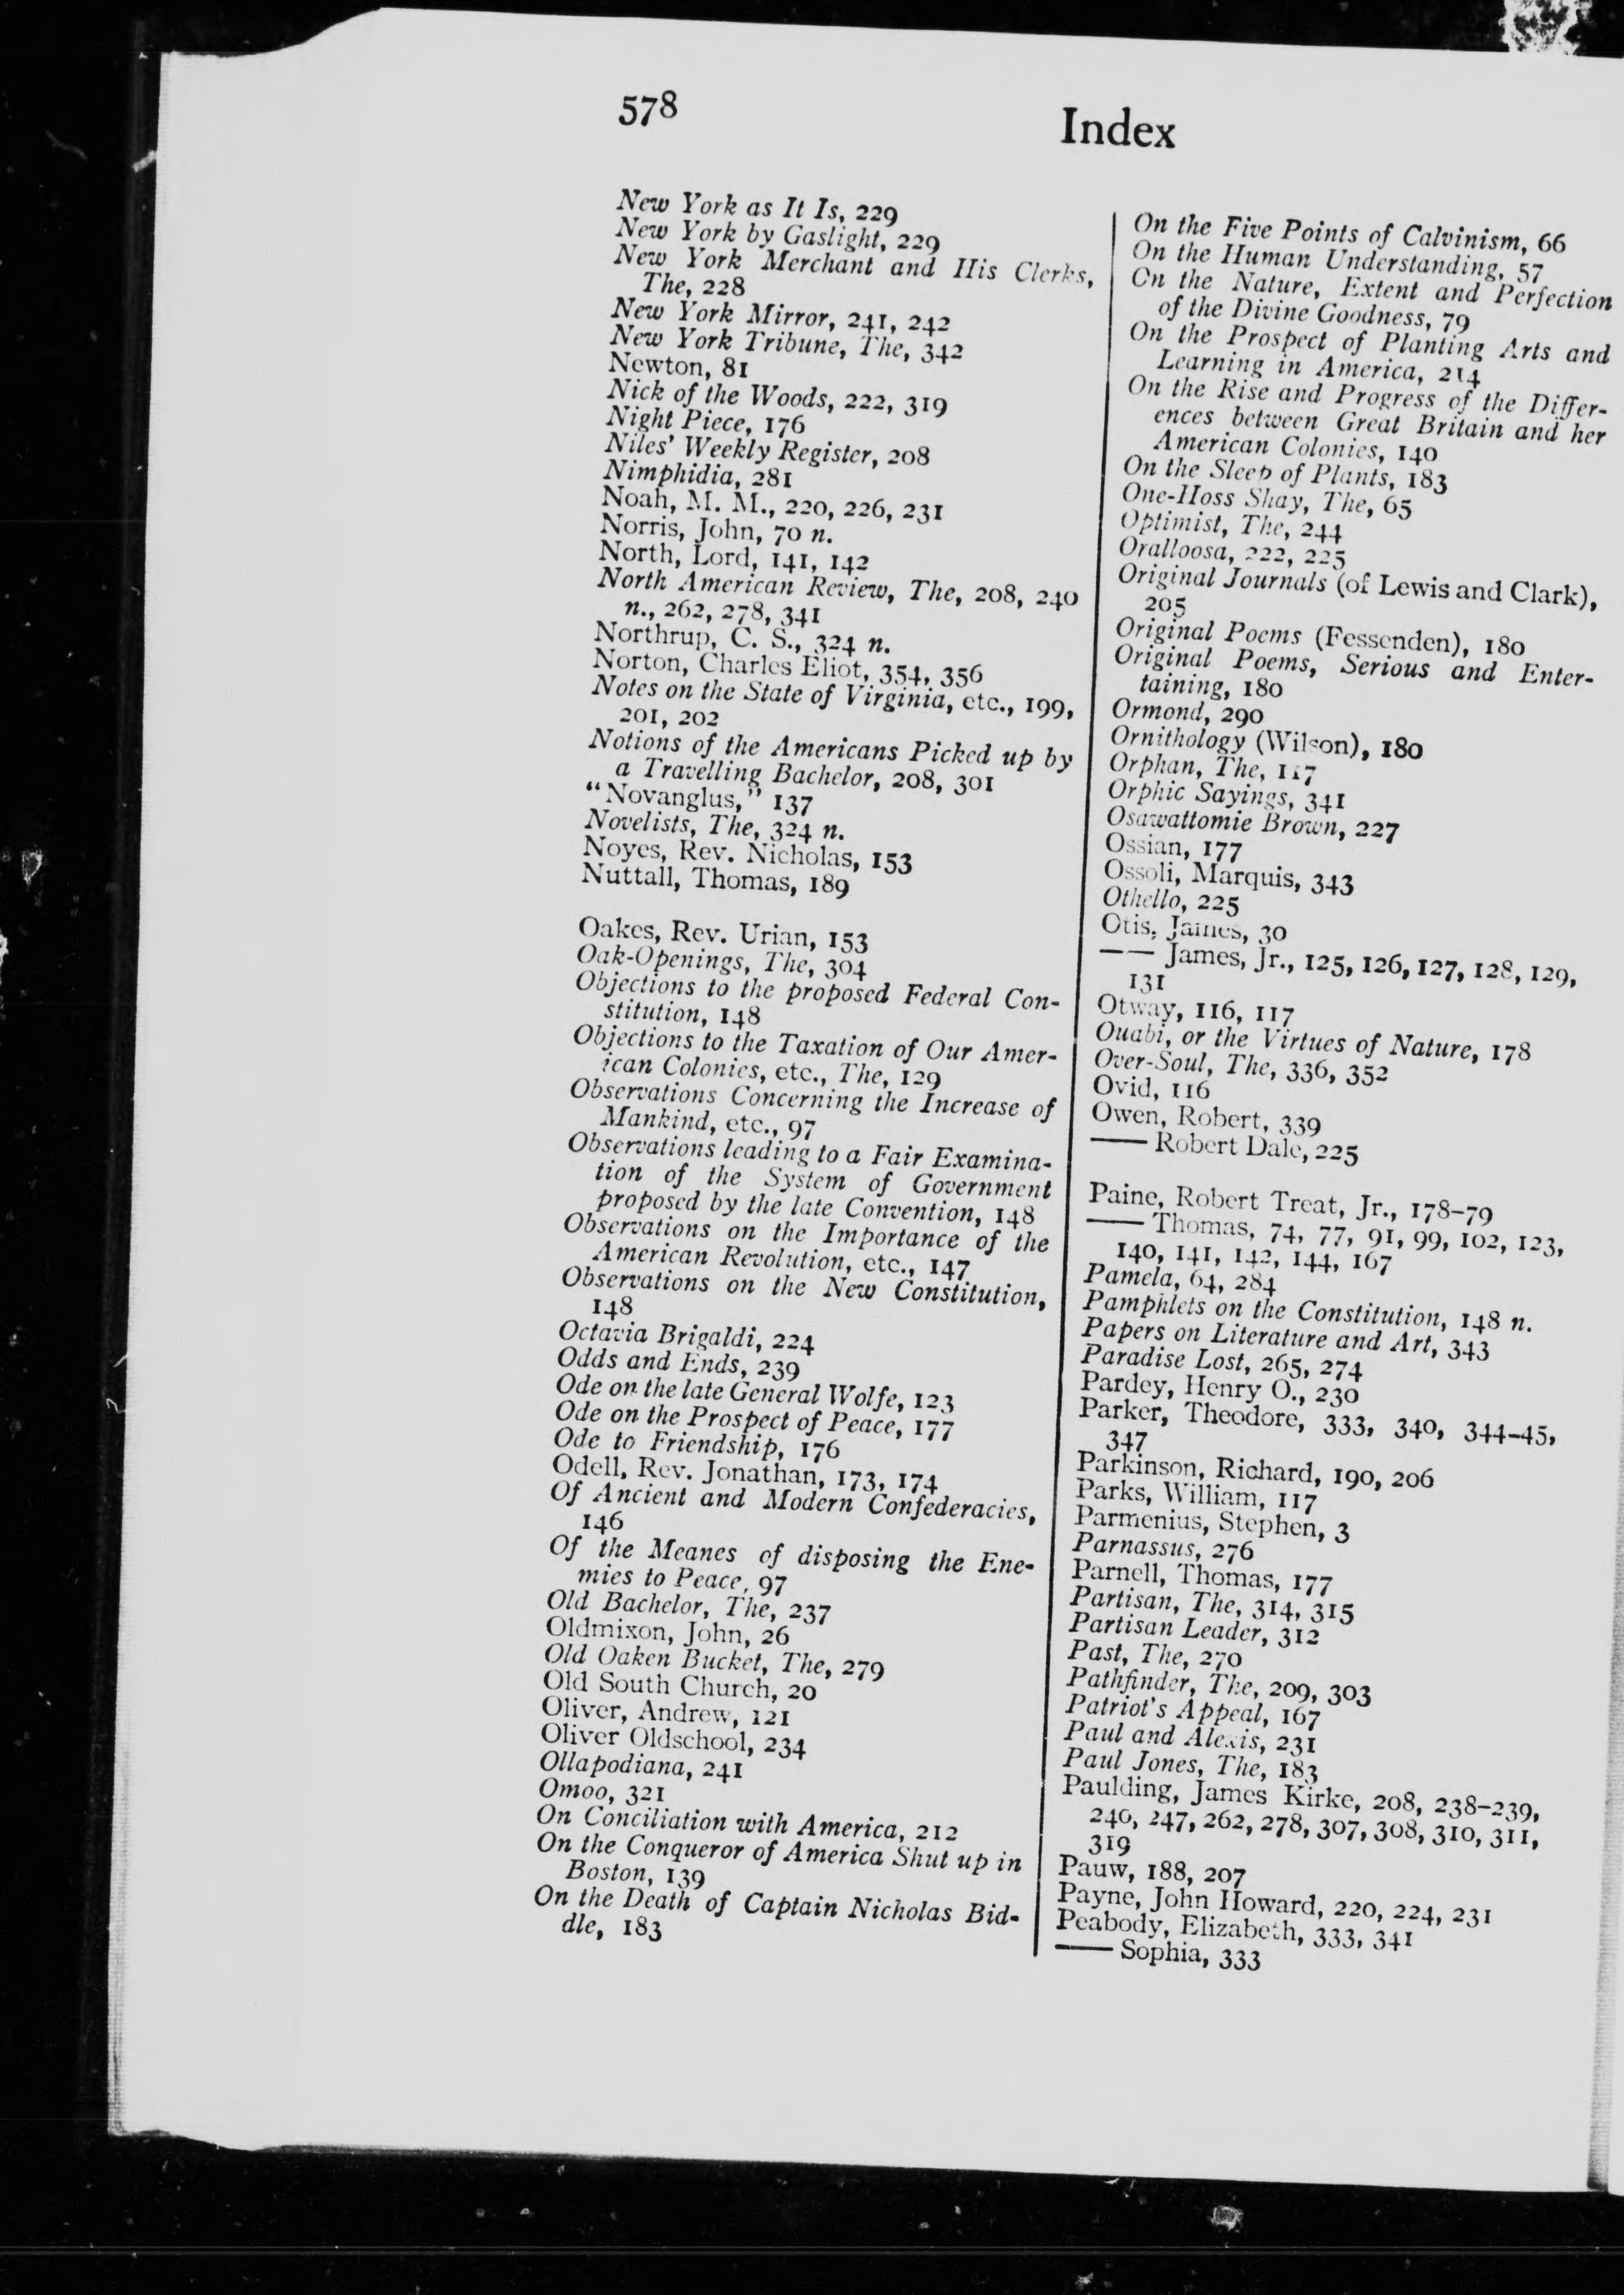 578
Index
New York as It Is, 229
New York by Gaslight, 229
New York Merchant and His Clerks,
The, 228
New York Mirror, 241, 242
New York Tribune, The, 342
Newton, 81
Nick of the Woods, 222, 319
Night Piece, 176
Niles' Weekly Register, 208
Nimphidia, 281
Noah, M. M., 220, 226, 231
Norris, John, 70 n.
North, Lord, 141, 142
North American Review, The, 208, 240
n., 262, 278, 341
Northrup, C. S., 324 n.
Norton, Charles Eliot, 354, 356
Notes on the State of Virginia, etc., 199,
201, 202
Notions of the Americans Picked up by
a Travelling Bachelor, 208, 301
"Novanglus," 137
Novelists, The, 324 n.
Noyes, Rev. Nicholas, 153
Nuttall, Thomas, 189
Oakes, Rev. Urian, 153
Oak-Openings, The, 304
Objections to the proposed Federal Con-
stitution, 148
Objections to the Taxation of Our Amer-
ican Colonies, etc., The, 129
Observations Concerning the Increase of
Mankind, etc., 97
Observations leading to a Fair Examina-
tion of the System of Government
proposed by the late Convention, 148
Observations on the Importance of the
American Revolution, etc., 147
Observations on the New Constitution,
148
Octavia Brigaldi, 224
Odds and Ends, 239
Ode on the late General Wolfe, 123
Ode on the Prospect of Peace, 177
Ode to Friendship, 176
Odell, Rev. Jonathan, 173, 174
Of Ancient and Modern Confederacies,
146
Of the Meanes of disposing the Ene-
mies to Peace, 97
Old Bachelor, The, 237
Oldmixon, John, 26
Old Oaken Bucket, The, 279
Old South Church, 20
Oliver, Andrew, 121
Oliver Oldschool, 234
Ollapodiana, 241
Omoo, 321
On Conciliation with America, 212
On the Conqueror of America Shut up in
Boston, 139
On the Death of Captain Nicholas Bid-
dle, 183
On the Five Points of Calvinism, 66
On the Human Understanding, 57
On the Nature, Extent and Perfection
of the Divine Goodness, 79
On the Prospect of Planting Arts and
Learning in America, 214
On the Rise and Progress of the Differ-
ences between Great Britain and her
American Colonies, 140
On the Sleep of Plants, 183
One-Hoss Shay, The, 65
Optimist, The, 244
Oralloosa, 222, 225
Original Journals (of Lewis and Clark),
205
Original Poems (Fessenden), 180
Original Poems, Serious and Enter-
taining, 180
Ormond, 290
Ornithology (Wilson), 180
Orphan, The, 117
Orphic Sayings, 341
Osawattomie Brown, 227
Ossian, 177
Ossoli, Marquis, 343
Othello, 225
Otis, James, 30
—— James, Jr., 125, 126, 127, 128, 129,
131
Otway, 116, 117
Ouabi, or the Virtues of Nature, 178
Over-Soul, The, 336, 352
Ovid, 116
Owen, Robert, 339
—— Robert Dale, 225
Paine, Robert Treat, Jr., 178-79
—— Thomas, 74, 77, 91, 99, 102, 123,
140, 141, 142, 144, 167
Pamela, 64, 284
Pamphlets on the Constitution, 148 n.
Papers on Literature and Art, 343
Paradise Lost, 265, 274
Pardey, Henry O., 230
Parker, Theodore, 333, 340, 344-45,
347
Parkinson, Richard, 190, 206
Parks, William, 117
Parmenius, Stephen, 3
Parnassus, 276
Parnell, Thomas, 177
Partisan, The, 314, 315
Partisan Leader, 312
Past, The, 270
Pathfinder, The, 209, 303
Patriot's Appeal, 167
Paul and Alexis, 231
Paul Jones, The, 183
Paulding, James Kirke, 208, 238-239,
240, 247, 262, 278, 307, 308, 310, 311,
319
Pauw, 188, 207
Payne, John Howard, 220, 224, 231
Peabody, Elizabeth, 333, 341
—— Sophia, 333